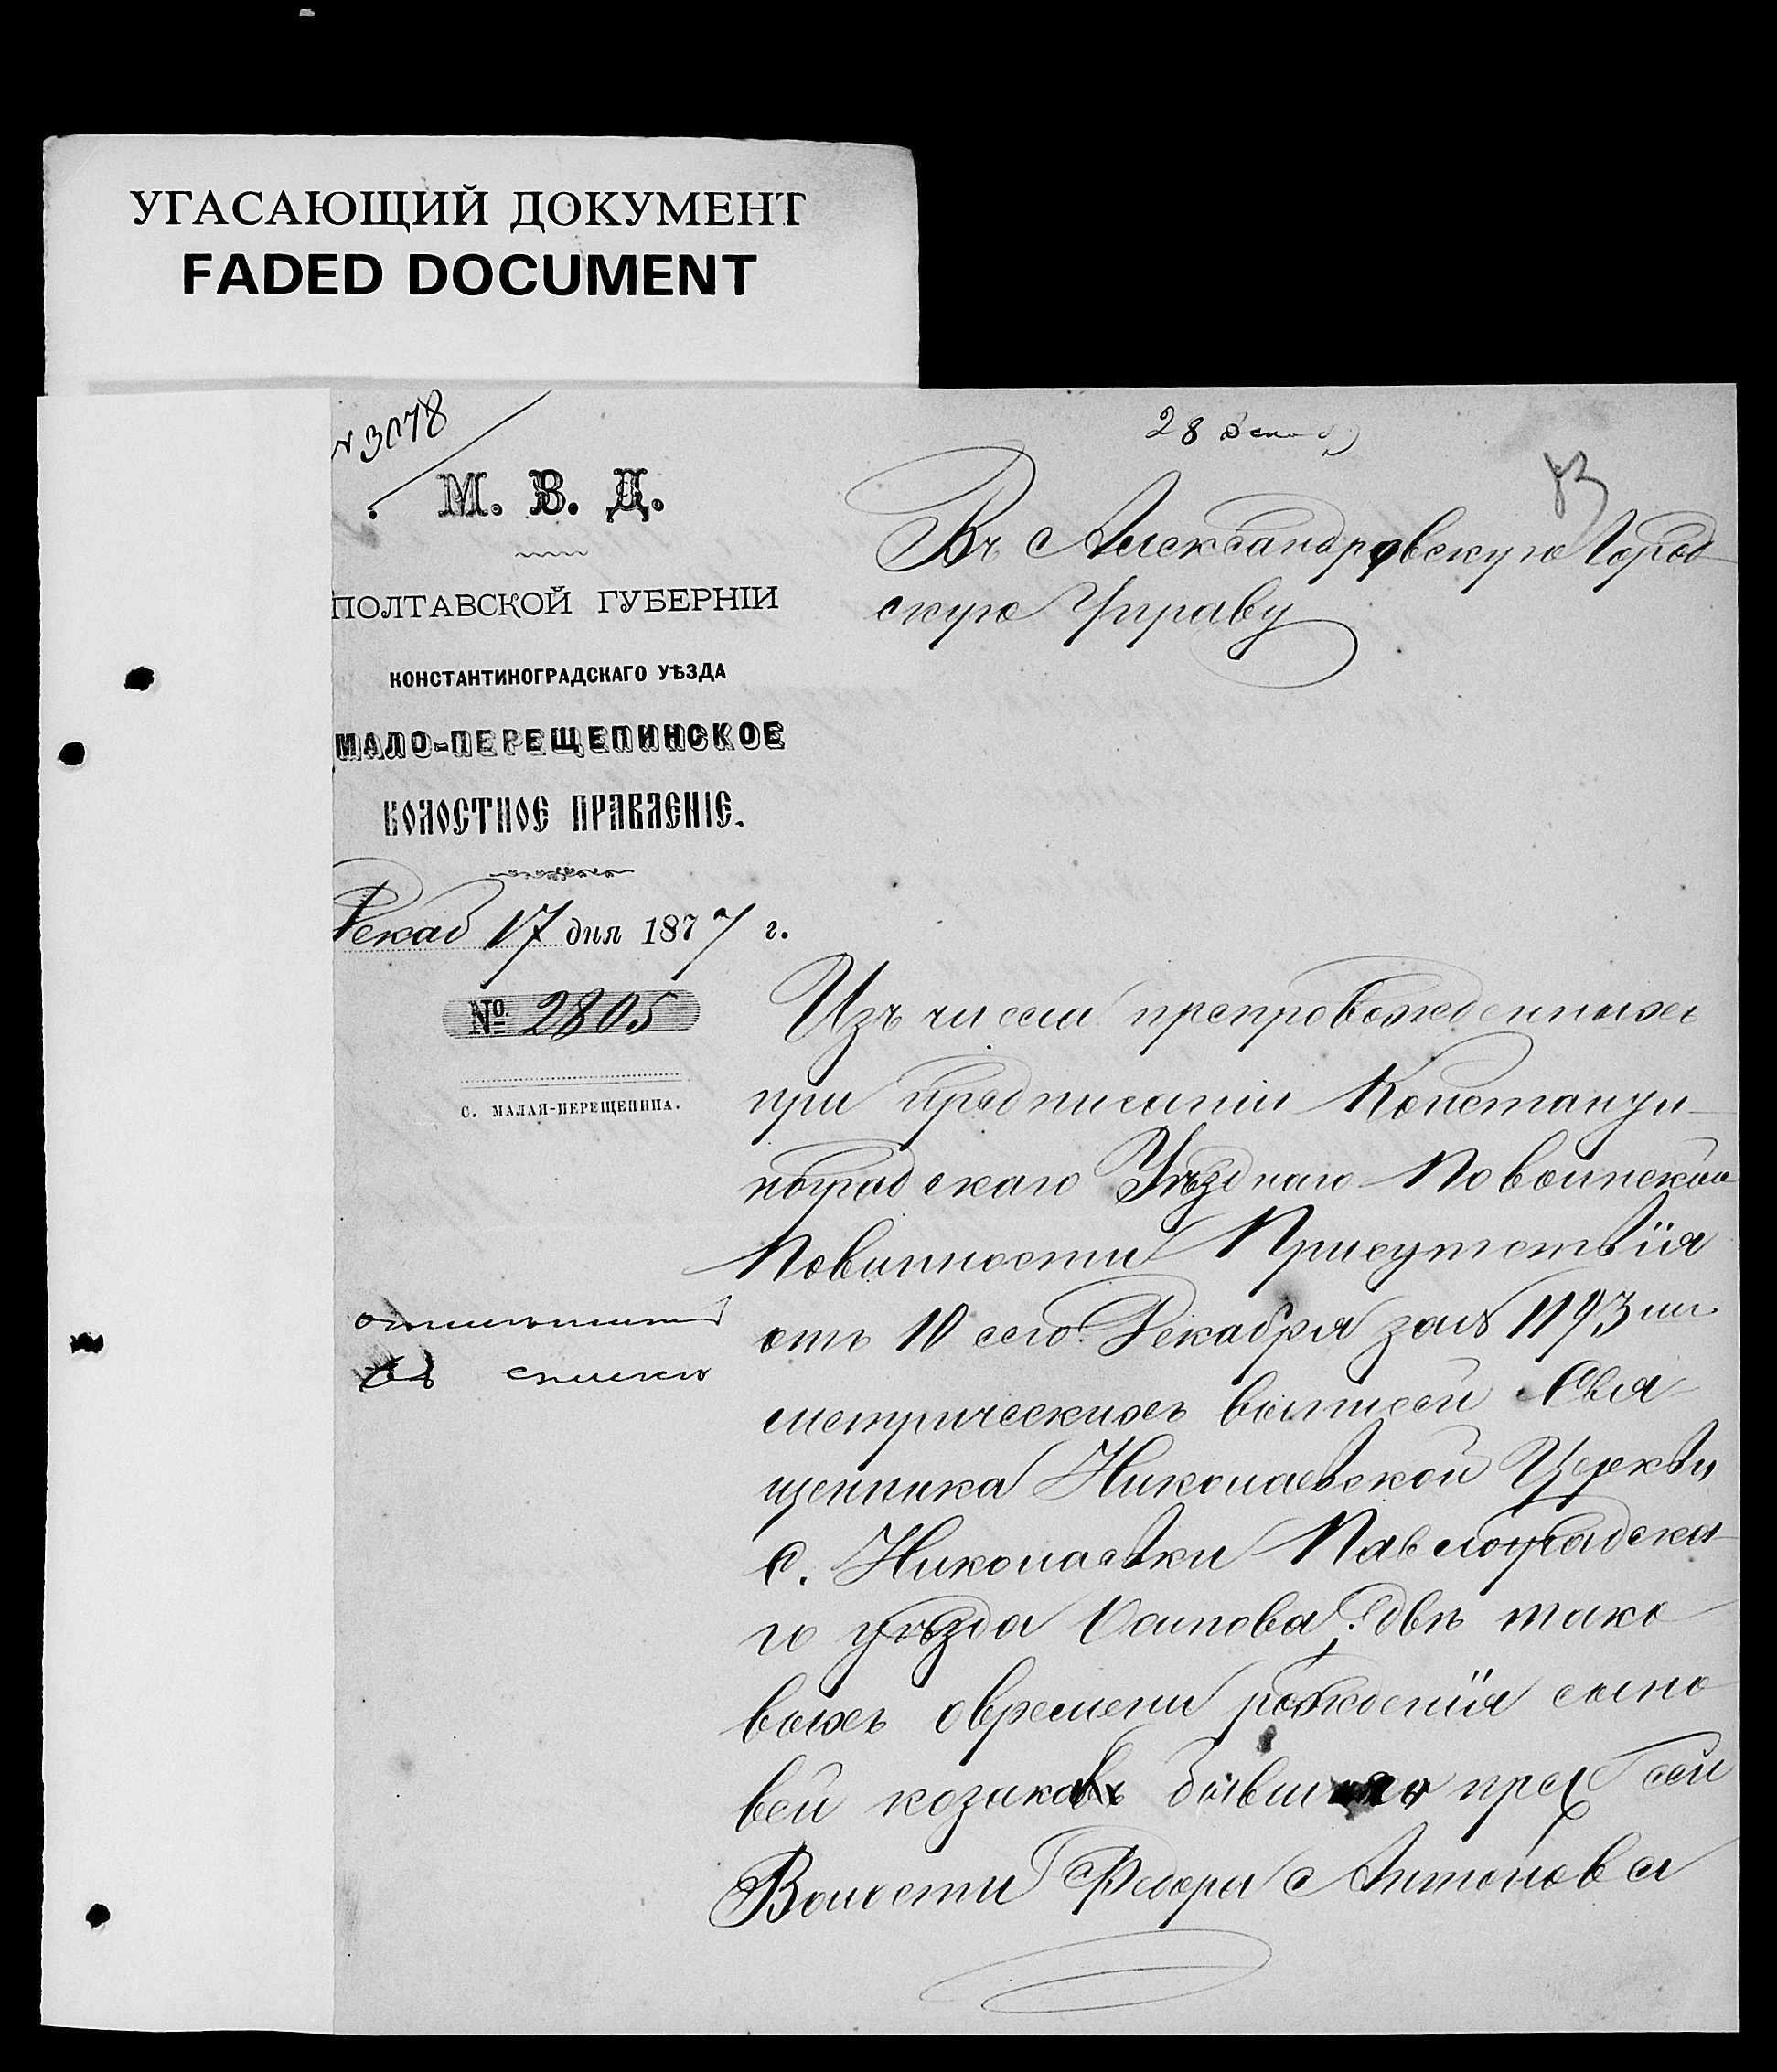 УГАСАЮЩИЙ ДОКУМЕНТ
FADED DOCUMENT
№ 3078
28 Декаб
83
М. В. Д.
ПОЛТАВСКОЙ ГУБЕРНІИ
КОНСТАНТИНОГРАДСКАГО УѢЗДА
МАЛО-ПЕРЕЩЕПИНСКОЕ
ВОЛОСТНОЕ ПРАВЛЕНІЕ.
Декаб 17 дня 1877 г.
№ 2805
С. МАЛАЯ-ПЕРЕЩЕПИНА.
Въ Александровскую Город
скую Управу
Изъ числа препровожденныхъ
при предписаніи Константи-
ноградскаго Уѣзднаго По воинской
Повинности Присутствія
отъ 10 сего Декабря за № 1193 ш
метрическихъ выписей Свя-
щенника Николаевской Церкви
с. Николаевки Павлоградска-
го уѣзда Осипова, двѣ тако
выхъ о времени рожденія сыно
вей козаковъ бывш пред сей
Волости Федора Антонова
отмѣтить
въ списке